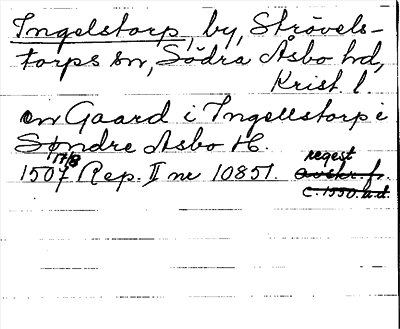 Ingelstorp, by, Strövels-
torps sn, Södra Åsbo hd,
Krist. l.
en Gaard i Ingellstorp i
Søndre Asbo H.
17/8
1507 Rep. II nr 10851. regest
avskr. fr.
c. 1550 u.d.